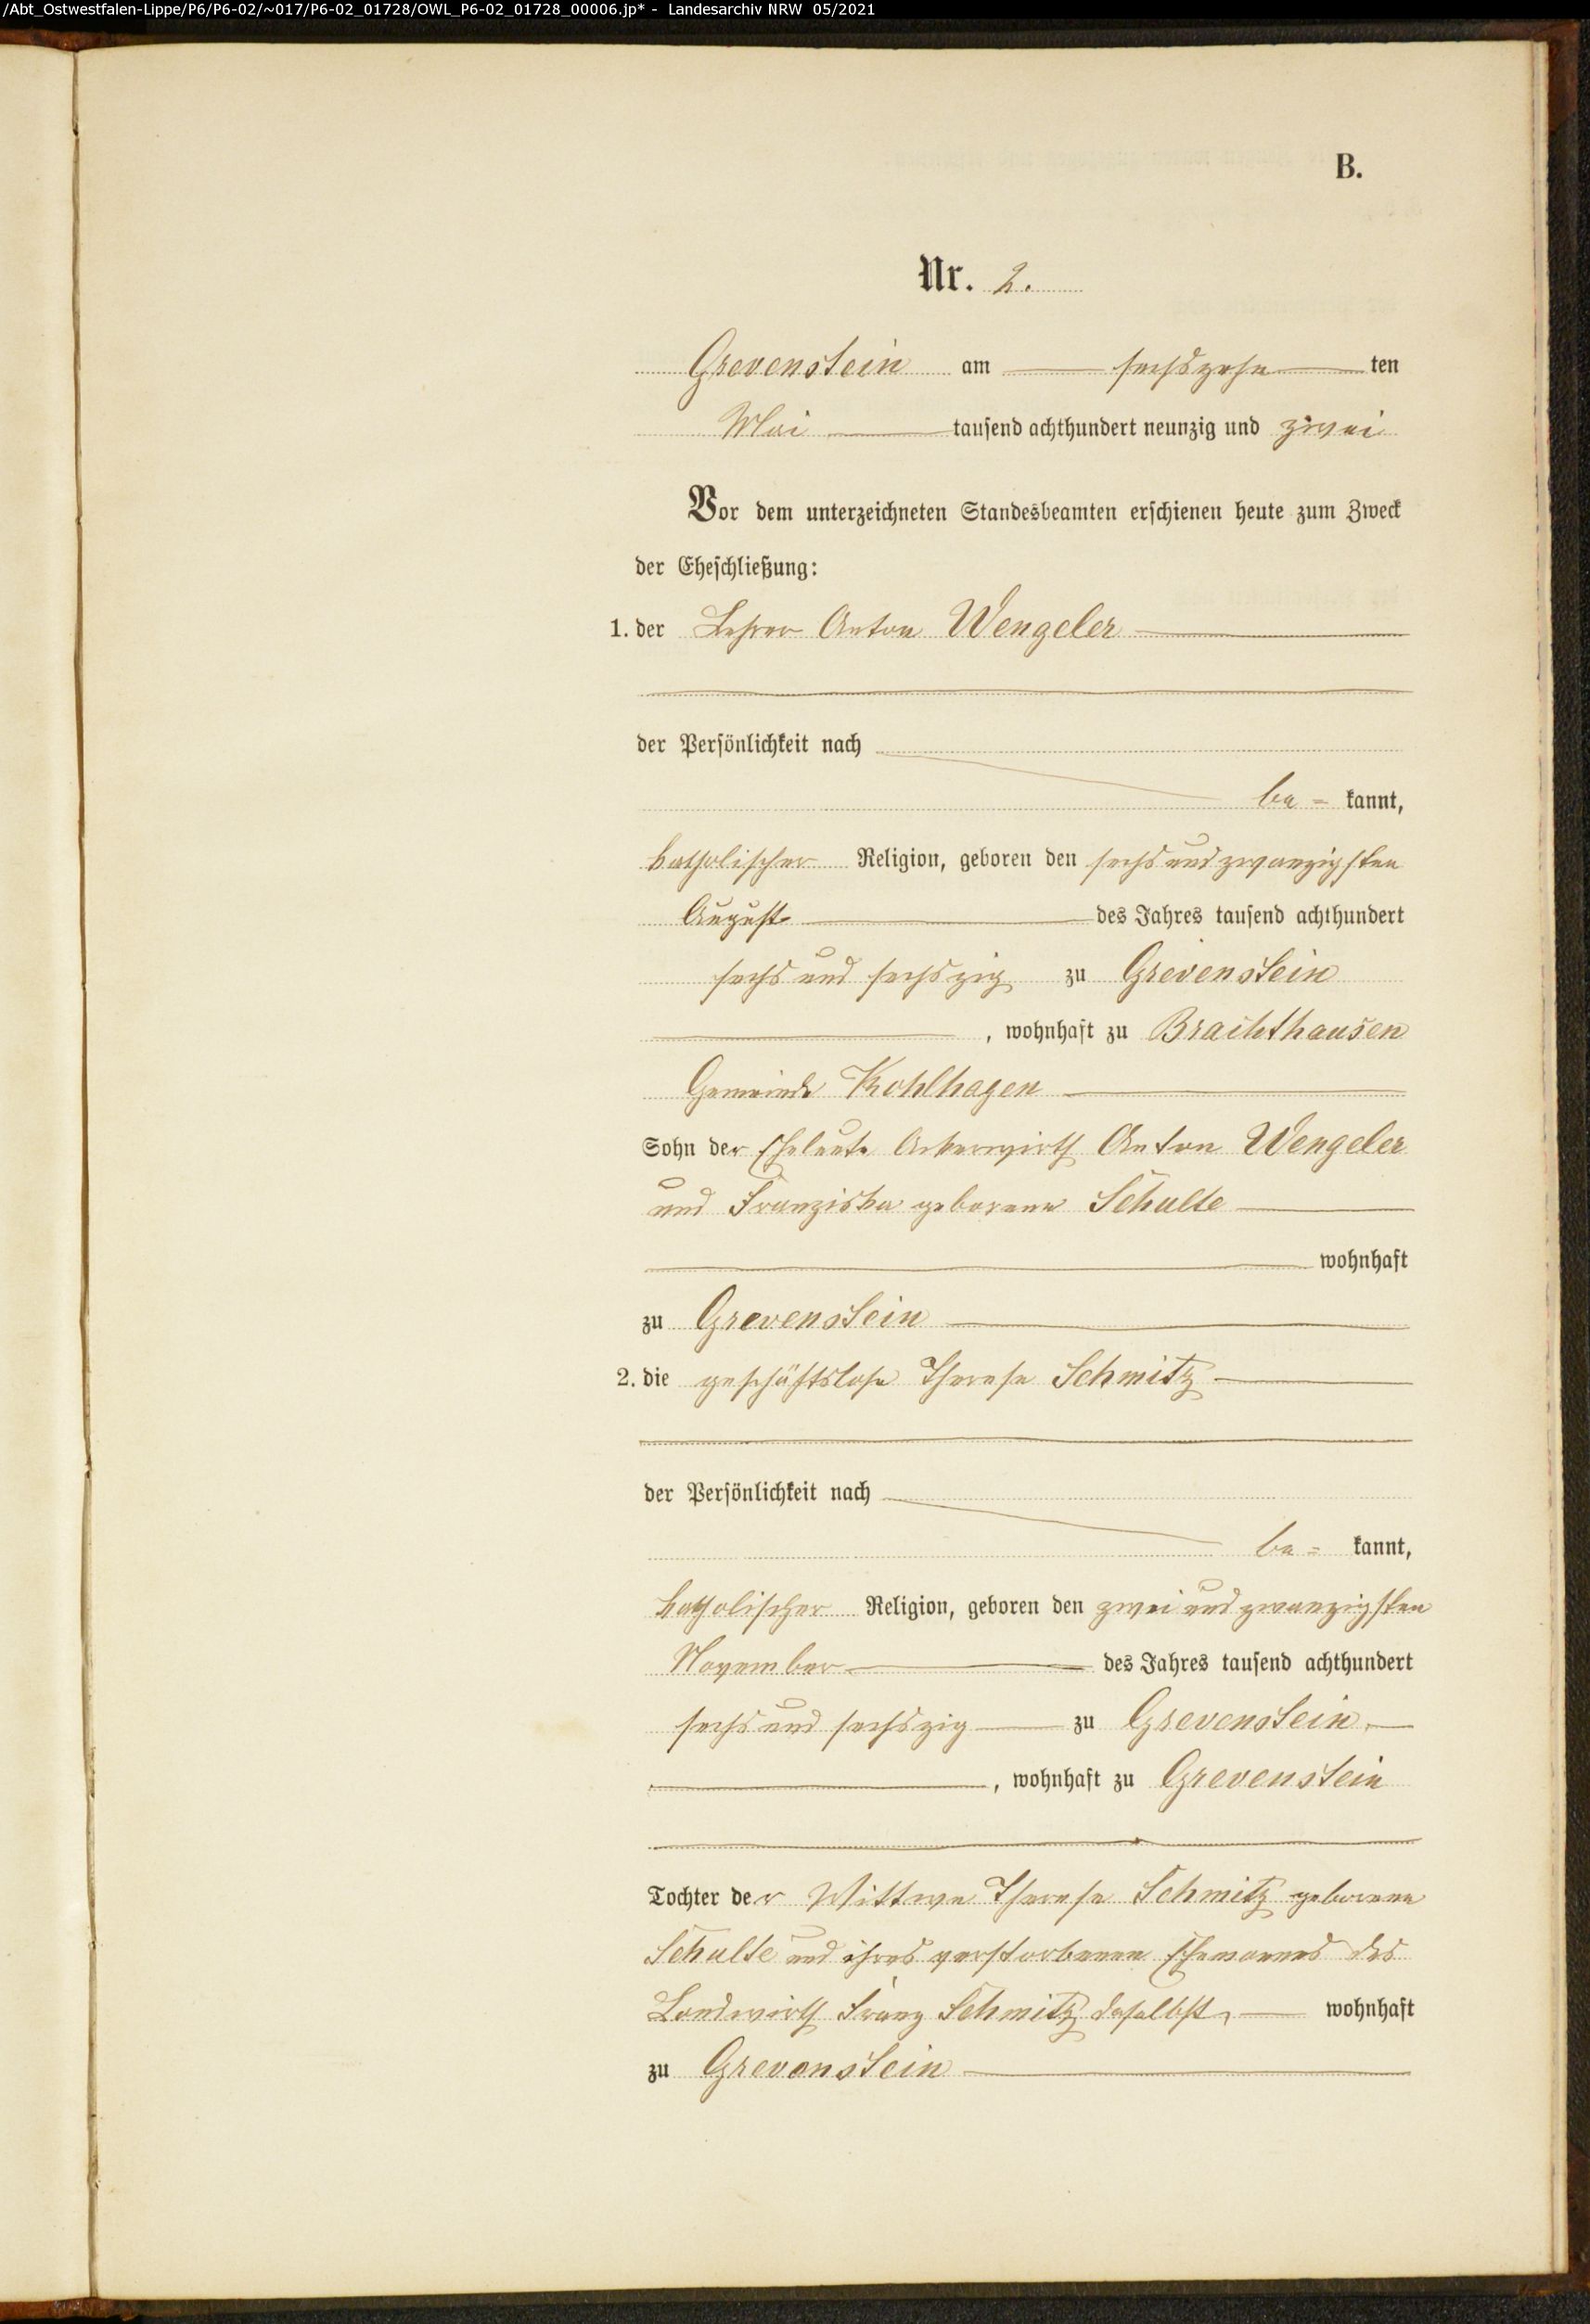 /Abt_Ostwestfalen-Lippe/P6/P6-02/~017/P6-02_01728/OWL_P6-02_01728_00006.jp* - Landesarchiv NRW 05/2021
B.
Nr. 2.
Grevenstein am sechszehn ten
Mai tausend achthundert neunzig und zwei
Vor dem unterzeichneten Standesbeamten erschienen heute zum Zweck
der Eheschließung:
1. der Lehrer Anton Wengeler
der Persönlichkeit nach
be = kannt,
katholischer Religion, geboren den sechs und zwanzigsten
August des Jahres tausend achthundert
sechs und sechszig zu Grevenstein
, wohnhaft zu Brachthausen
Gemeinde Kohlhagen
Sohn der Eheleute Ackerwirth Anton Wengeler
und Franziska geborene Schulte
wohnhaft
zu Grevenstein
2. die geschäftslose Therese Schmitz
der Persönlichkeit nach
be = kannt,
katholischer Religion, geboren den zwei und zwanzigsten
November des Jahres tausend achthundert
sechs und sechszig zu Grevenstein
, wohnhaft zu Grevenstein
Tochter der Wittwe Therese Schmitz geborene
Schulte und ihres verstorbenen Ehemannes des
Landwirth Franz Schmitz daselbst, wohnhaft
zu Grevenstein